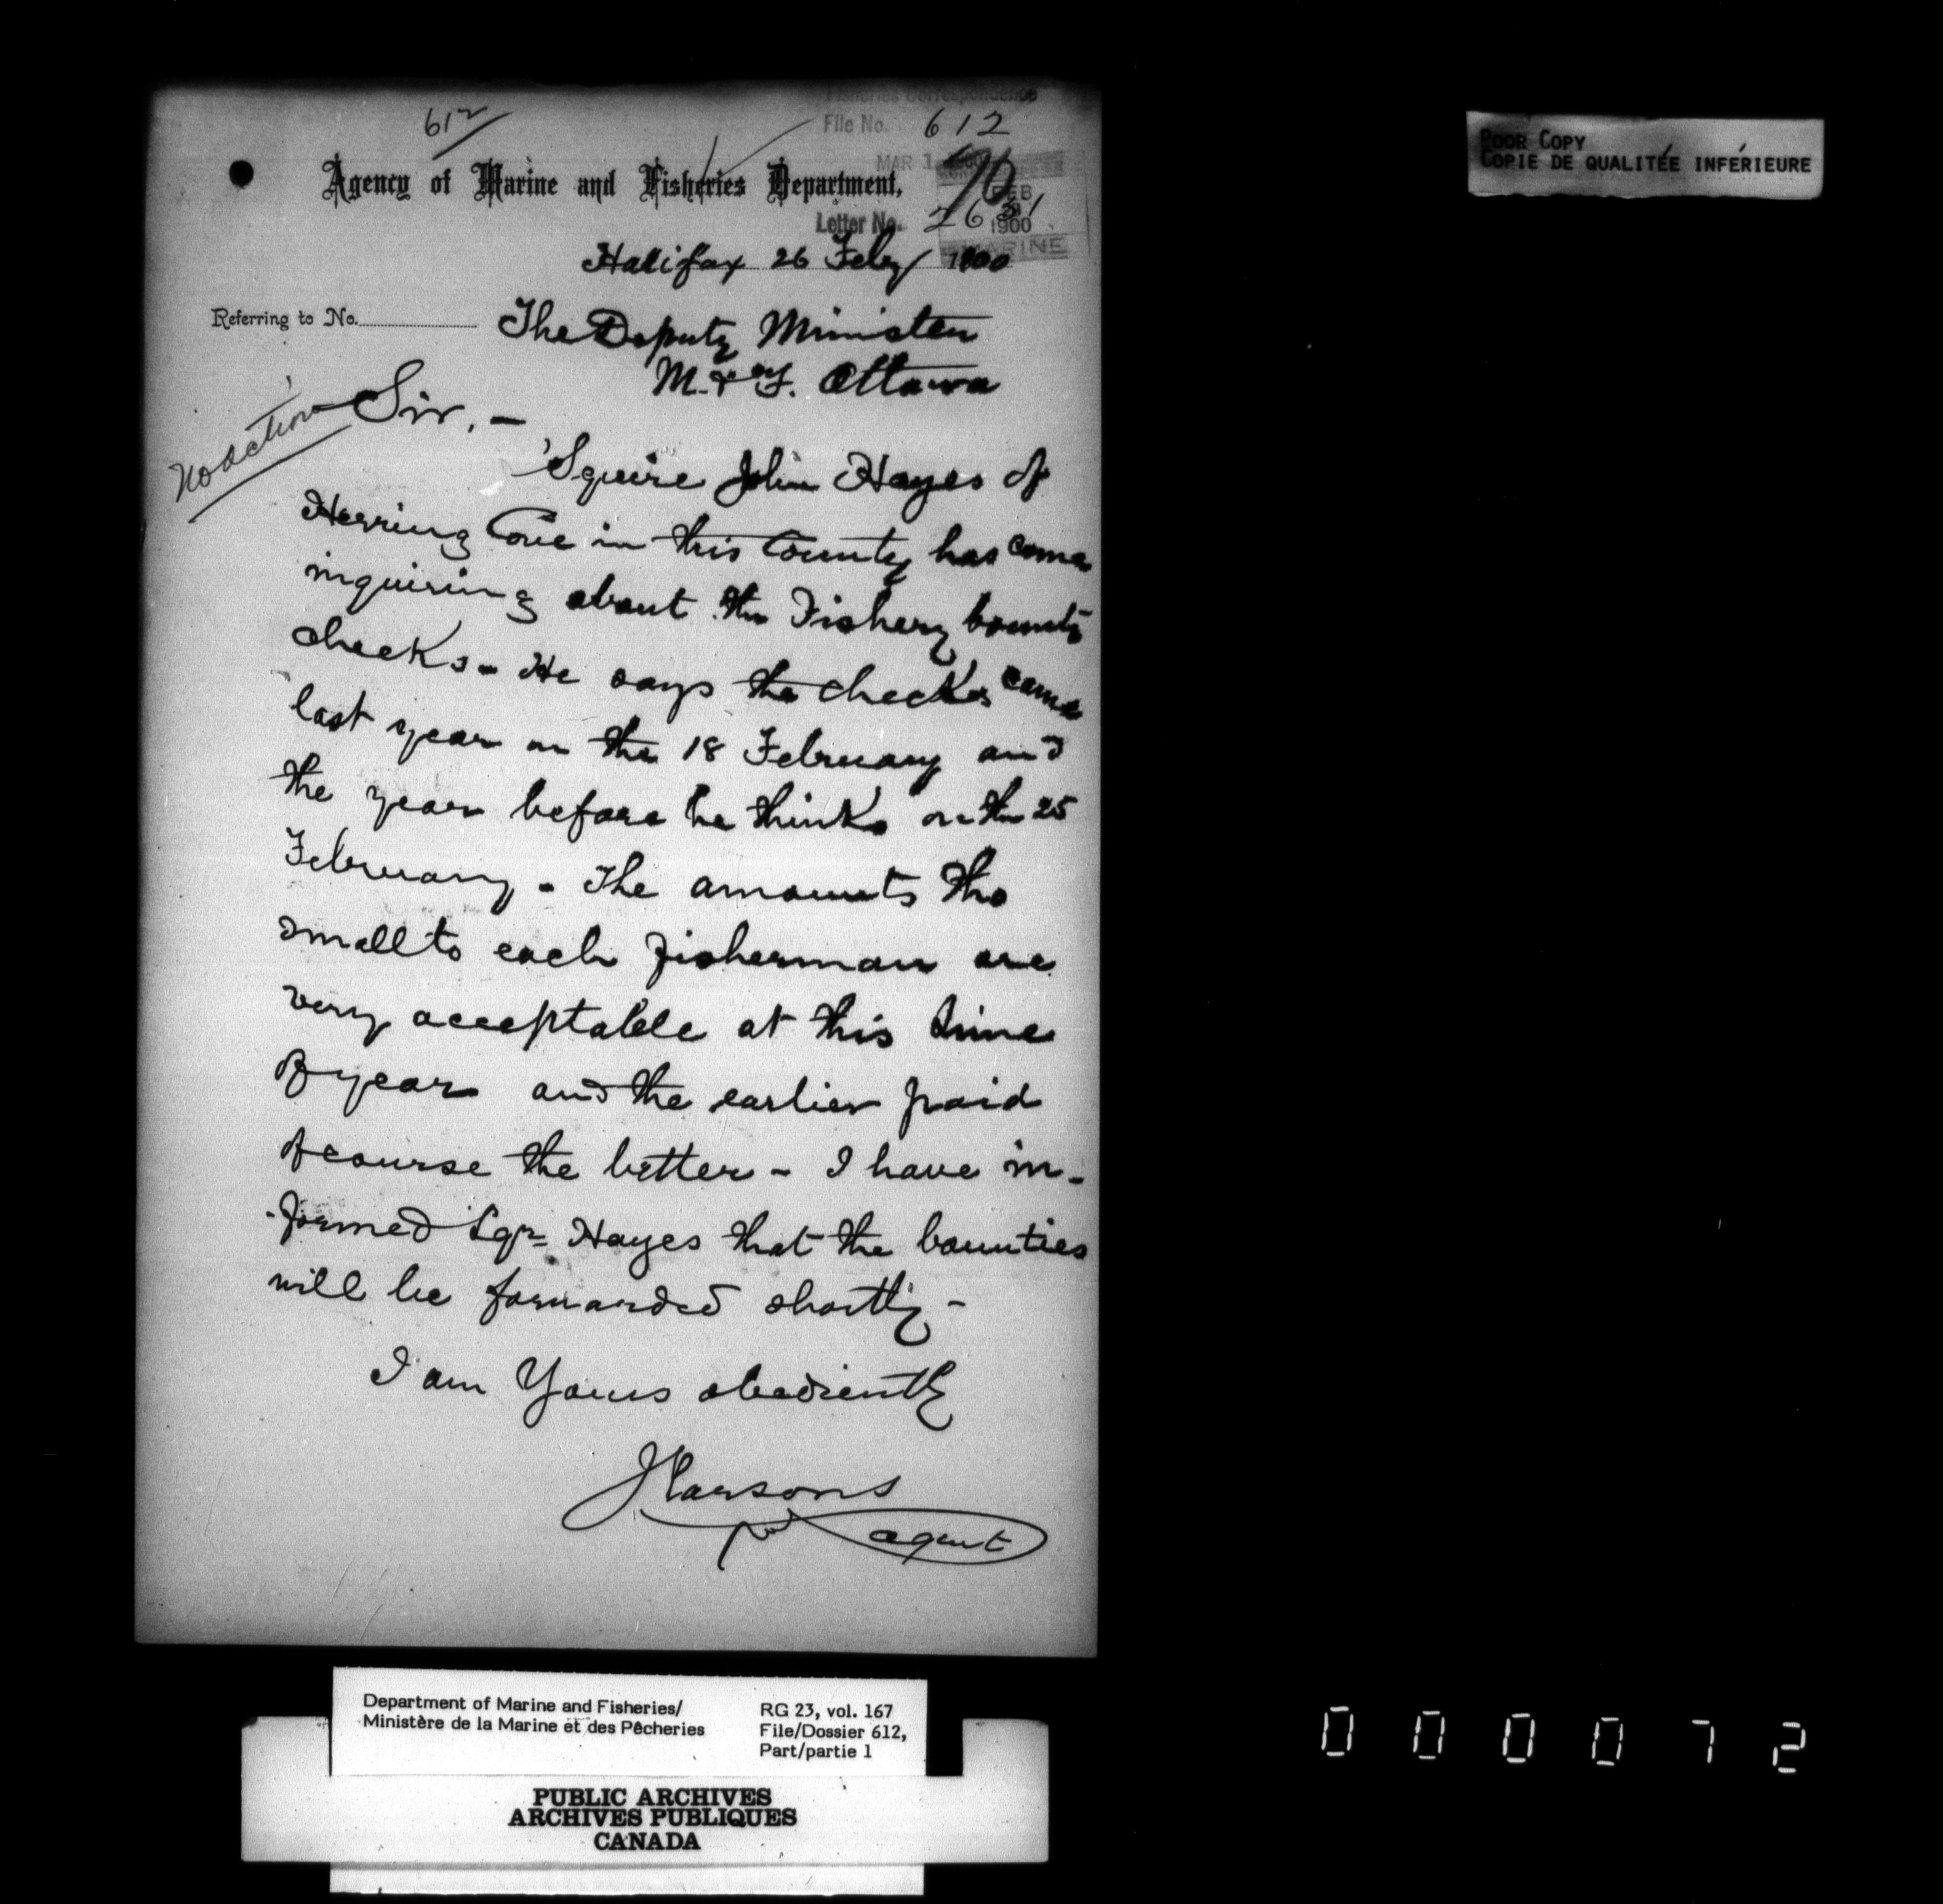 612
Fisheries Correspondence
File No. 612
MAR 1 1900
Agency of Marine and Fisheries Department,
FEB
1900
MARINE
Letter No. 2631
Halifax 26 Feby 1900
Referring to No.
The Deputy Minister
M. & F. Ottawa
No action
Sir, -
'Squire John Hayes of
Herring Cove in this County has come
inquiring about the Fishery bounty
checks - He says the checks came
last year on the 18 February and
the year before he thinks on the 25
February - The amounts tho
small to each fisherman are
very acceptable at this time
of year and the earlier paid
of course the better - I have in-
-formed Sqr Hayes that the bounties
will be forwarded shortly -
I am Yours obediently
J Parsons
agent
POOR COPY
COPIE DE QUALITÉE INFÉRIEURE
Department of Marine and Fisheries/
Ministère de la Marine et des Pêcheries
RG 23, vol. 167
File/Dossier 612,
Part/partie 1
PUBLIC ARCHIVES
ARCHIVES PUBLIQUES
CANADA
000072